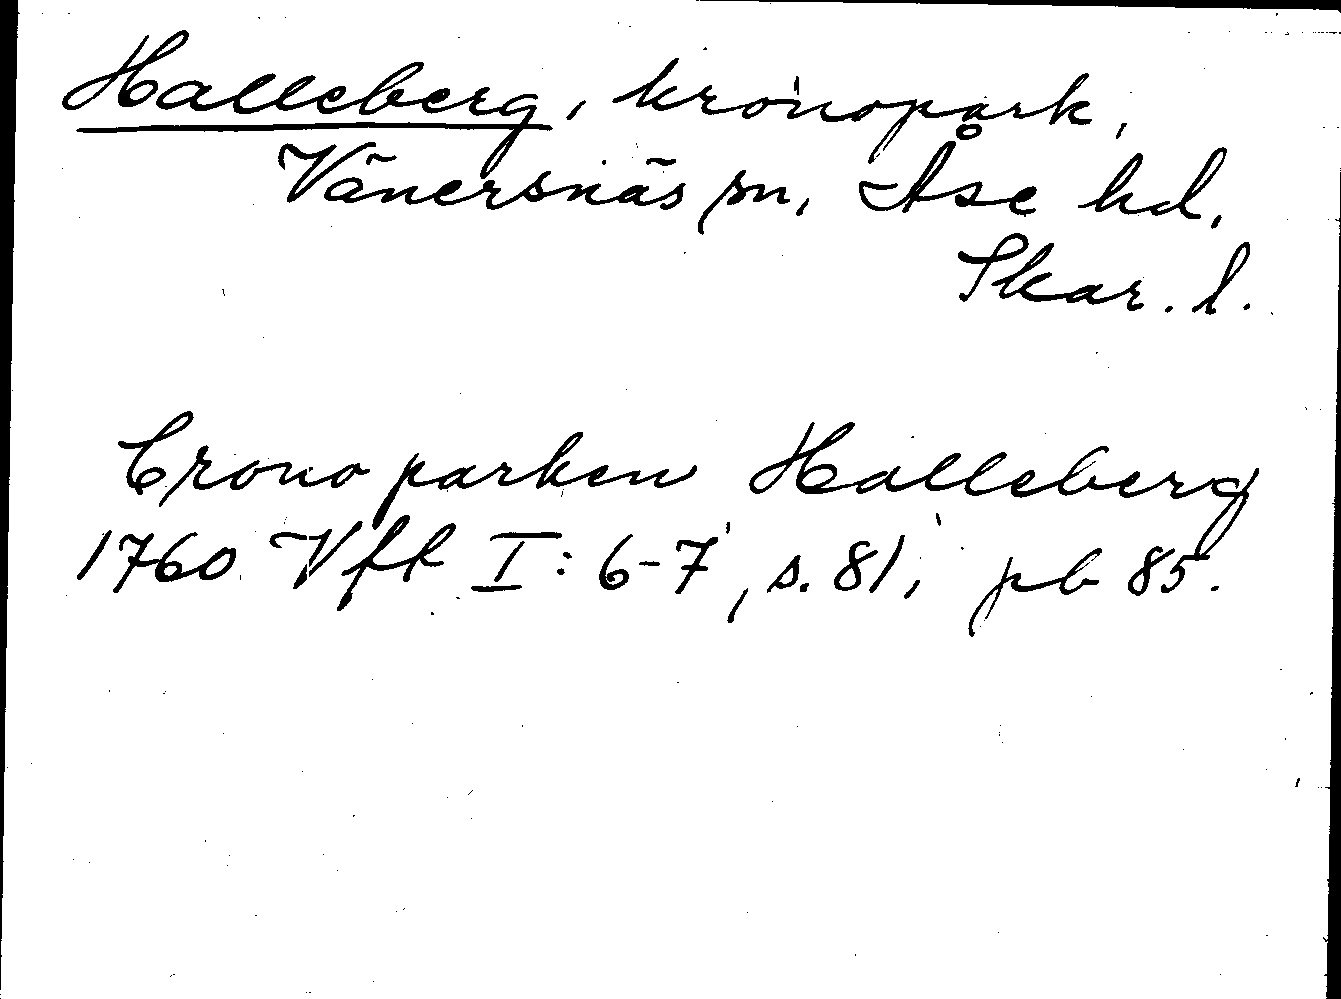 Halleberg, kronopark,
Vänersnäs sn, Åse hd,
Skar. l.
Crono parken Halleberg
1760 Vft I: 6-7, s. 81, pb 85.